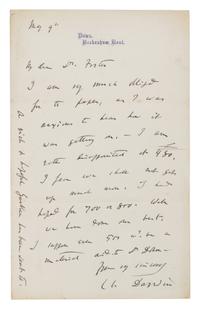 May 9th
Down,
Beckenham, Kent.
My dear Dr. Foster
I am very much obliged
for the paper, as I was
anxious to hear how it
was getting on. — I am
rather disappointed at £80.
I fear we shall not get
up much more. I had
hoped for 700 or 800. With
have done our best.
I suppose even 500 will be a
material aid to Dr
yours very sincerely
Ch. Darwin
A rich & helpful has been sent to